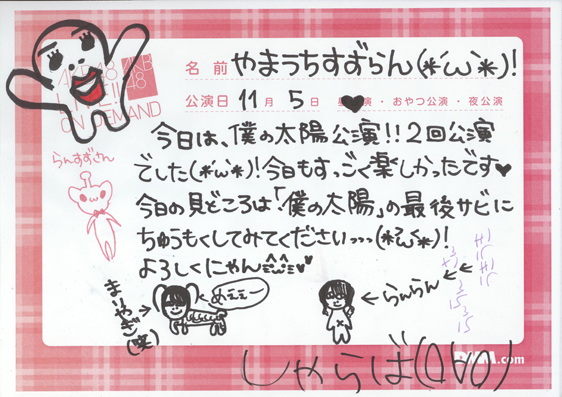 AKB48
LIVE!!
ON DEMAND
AKB
48
名前 やまうちすずらん(*´ω`*)!
公演日 11月5日 昼公演・おやつ公演・夜公演
今日は、僕の太陽公演!!2回公演
でした(*´ω`*)!今日もすっごく楽しかったです♥
らんすずさん
今日の見どころは「僕の太陽」の最後サビに
ちゅうもくしてみてください、、、(*´ω`*)!
よろしくにゃん
まりやぎ(笑)
→
めぇぇー
←らんらん
しゃらば(ДАО(
.com